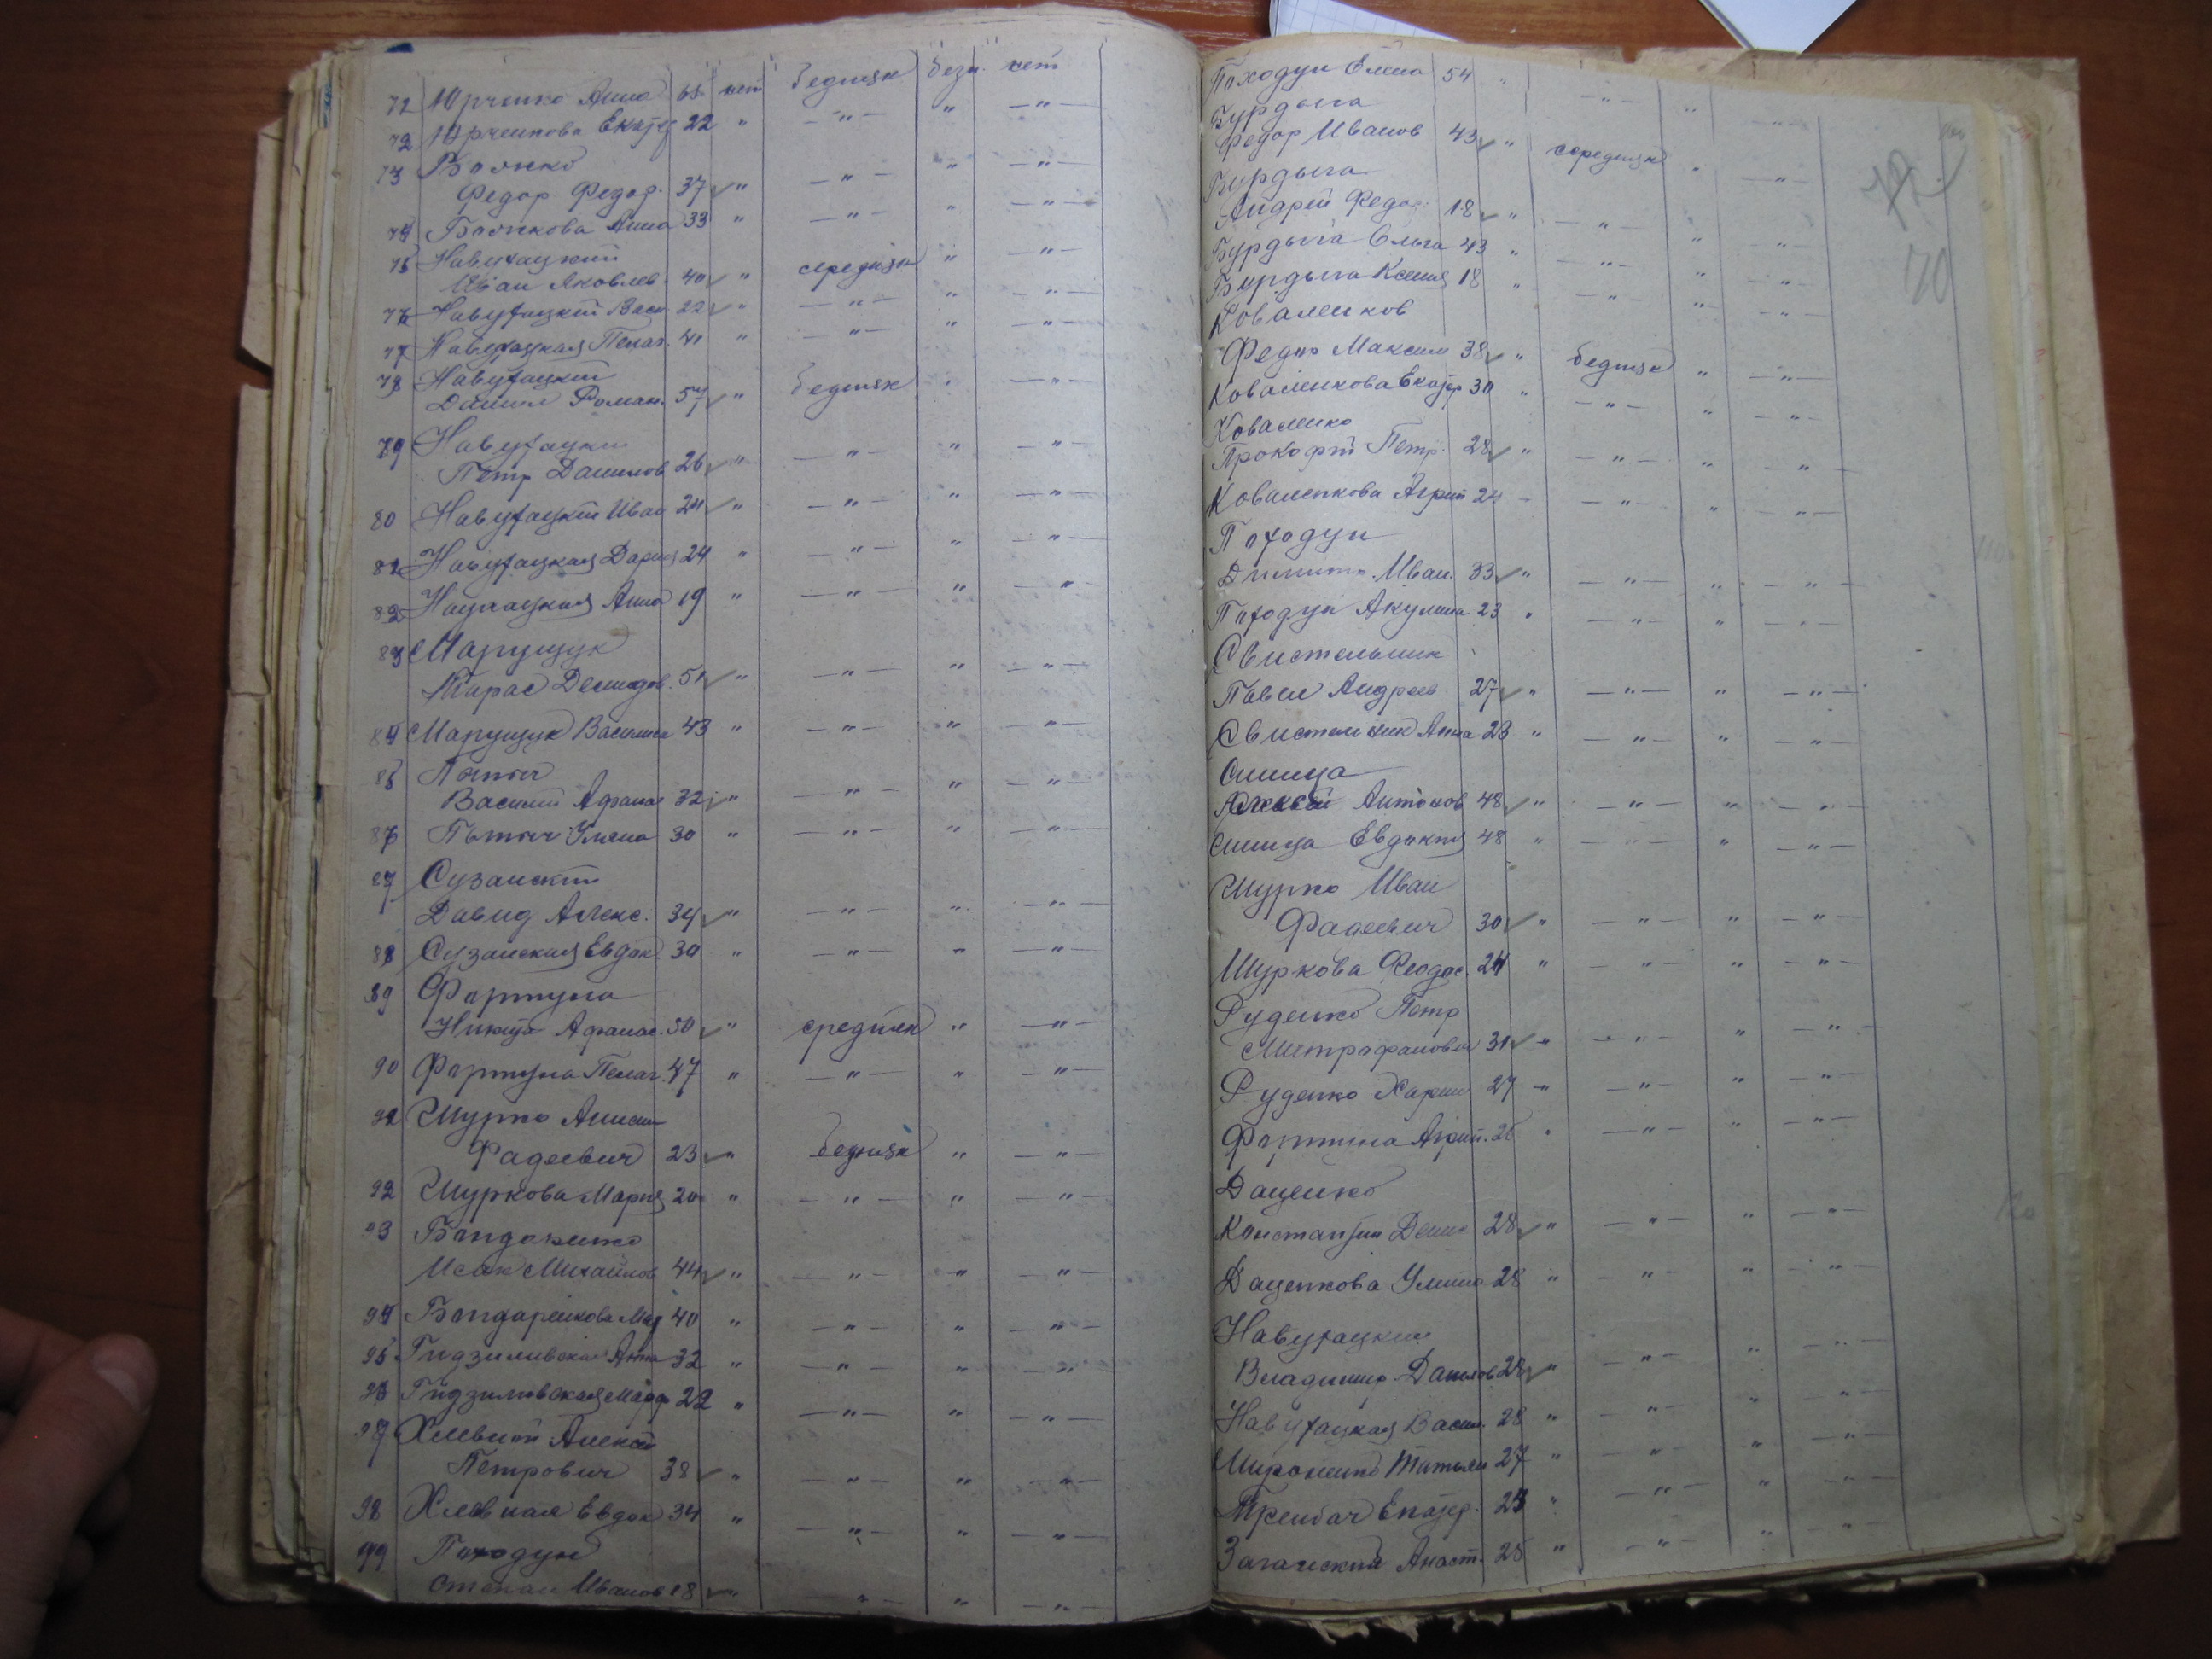 71 Юрченко Анна 65 нет бедняк безп. нет
72 Юрченкова Екатер 22 " —"— " —"—
73 Божко
Федор Федор. 37 " —"— " —"—
74 Божкова Анна 33 " —"— " —"—
75 Навухацкий
Иван Яковлев. 40 " середняк " —"—
76 Навухацкий Васи 22 " —"— " —"—
77 Навухацкая Пелаг. 41 " —"— " —"—
78 Навухацкий
Данил Роман. 57 " бедняк " —"—
79 Навухацки
Петр Данилов 26 " —"— " —"—
80 Навухацкий Иван 24 " —"— " —"—
81 Навухацкая Дария 24 " —"— " —"—
82 Анна 19 " —"— " —"—
83 Марущук
Тарас Демидов. 51 " —"— " —"—
84 Марущук Василиса 43 " —"— " —"—
85
Василий Афанас 32 " —"— " —"—
86 Уляна 30 " —"— " —"—
87 Сузанский
Давид Алекс. 34 " —"— " —"—
88 Сузанская Евдок. 30 " —"— " —"—
89 Фартуна
Никита Афанас. 50 " средняк " —"—
90 Фартуна Пелаг. 47 " —"— " —"—
91 Шурко Анисим
Фадеевич 23 " бедняк " —"—
92 Шуркова Мария 20 " —"— " —"—
93 Бондаренко
Исак Михайлов 44 " —"— " —"—
94 Бондаренкова Мар 40 " —"— " —"—
95 Гидзиливска Анна 32 " —"— " —"—
96 Гидзиливская Марф 22 " —"— " —"—
97 Хлевной Алексей
Петрович 38 " —"— " —"—
98 Хлевная Евдок 34 " —"— " —"—
99 Походун
Степан Иванов 18 " —"— " —"—
Походун Елена 54 " —"— " —"—
Бурдыга
Федор Иванов 43 " середняк " —"—
Бурдыга
Андрей Федо 18 " —"— " —"—
Бурдыга Ольга 43 " —"— " —"—
Бурдыга Ксения 18 " —"— " —"—
70
Коваленков
Федор Максим 38 " бедняк " —"—
Коваленкова Екатер 30 " —"— " —"—
Коваленко
Прокофий Петр. 28 " —"— " —"—
Коваленкова Агрип 24 – —"— " —"—
Походун
Димитр. Иван. 33 " —"— " —"—
Походун Акулина 23 " —"— " —"—
Свистельник
Павел Андреев. 27 " —"— " —"—
Свистельник Анна 23 " —"— " —"—
Синица
Алексей Антонов 48 " —"— " —"—
Синица Евдокия 48 " —"— " —"—
Шурко Иван
Фадеевич 30 " —"— " —"—
Шуркова Феодос. 24 " —"— " —"—
Руденко Петр
Митрофанович 31 " —"— " —"—
Руденко 27 " —"— " —"—
Агрип. 26 " —"— " —"—
Даценко
Константин Денис 28 " —"— " —"—
Даценкова Улиана 28 " —"— " —"—
Навухацкий
Владимир Данилов 28 " —"— " —"—
Навухацкая Васил. 28 " —"— " —"—
Мироненко Татьян 27 " —"— " —"—
Екатер. 23 " —"— " —"—
Анаст. 25 " —"— " —"—